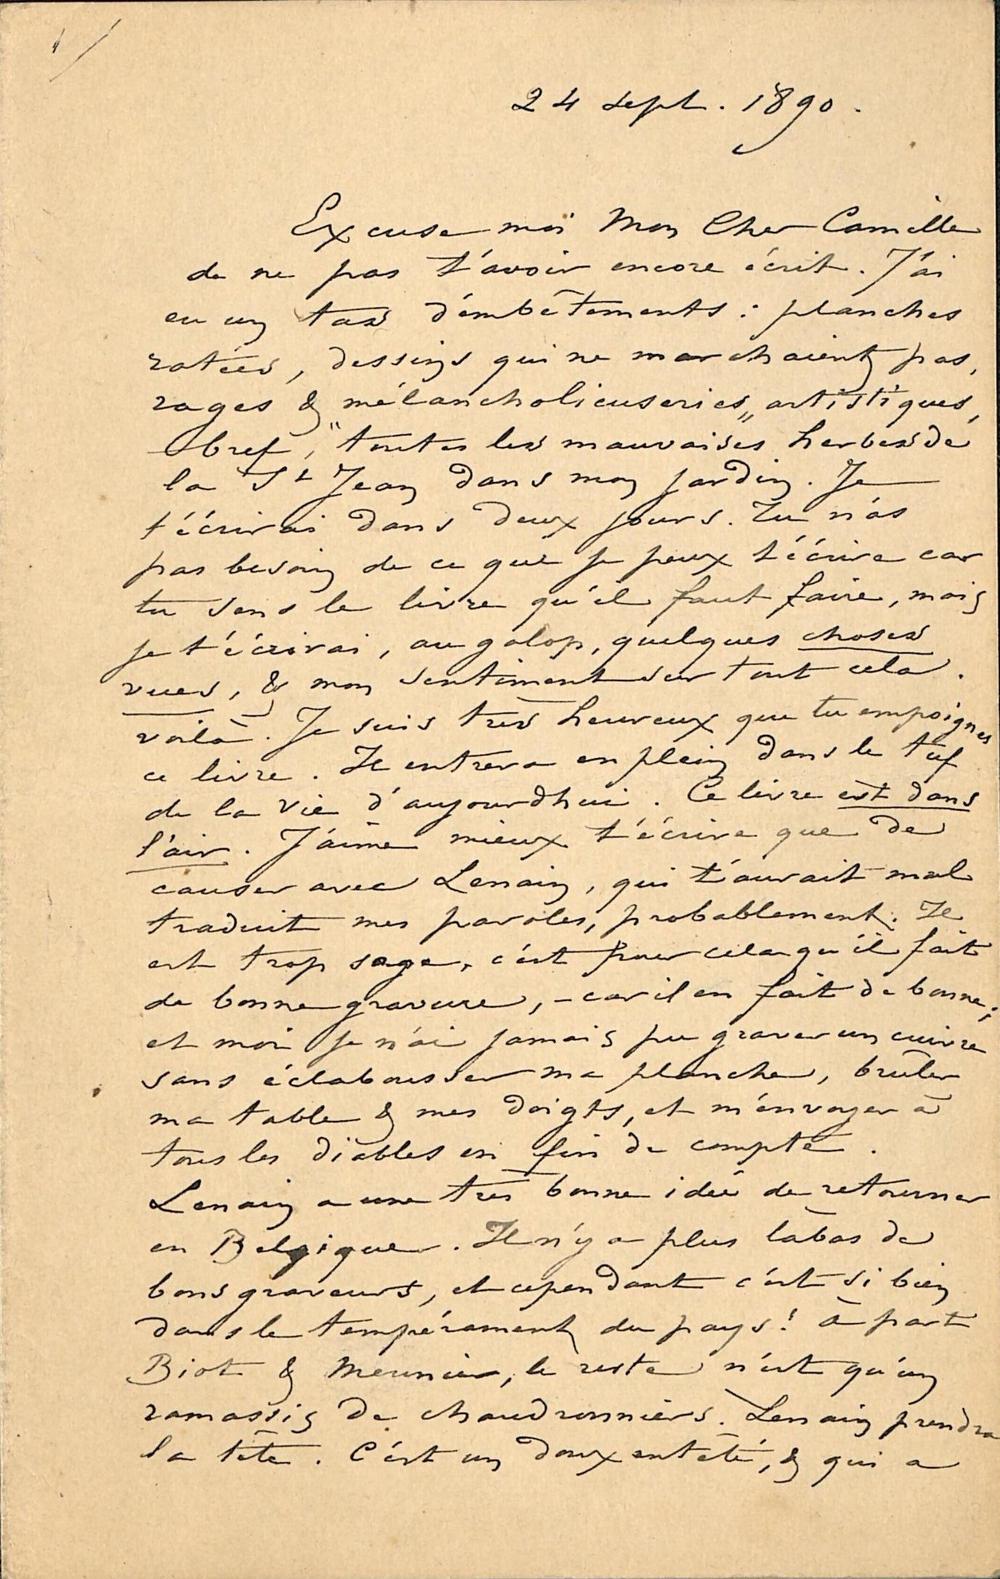 1/
24 sept. 1890.
Excuse moi Mon Cher Camille
de ne pas t'avoir encore écrit. J'ai
eu un tas d'embêtements : planches
ratées, dessins qui ne marchaient pas,
rages & mélancholieuseries „artistiques,
bref, " toutes les mauvaises herbes de
la St Jean dans mon jardin. Je
t'écrirai dans deux jours. Tu n'as
pas besoin de ce que je peux t'écrire car
tu sens le livre qu'il faut faire, mais
je t'écrirai, au galop, quelques choses
vues, & mon sentiment sur tout cela.
voilà. Je suis très heureux que tu empoignes
ce livre. Il entrera en plein dans le tuf
de la vie d'aujourdhui. Ce livre est dans
l'air. J'aime mieux t'écrire que de
causer avec Lenain, qui t'aurait mal
traduit mes paroles, probablement. Il
est trop sage, c'est pour cela qu'il fait
de bonne gravure, – car il en fait de bonne;
et moi je n'ai jamais pu graver un cuivre
sans éclabousser ma planche, brûler
ma table & mes doigts, et m'envoyer à
tous les diables en fin de compte.
Lenain a une très bonne idée de retourner
en Belgique. Il n'y a plus làbas de
bons graveurs, et cependant c'est si bien
dans le tempérament du pays! à part
Biot & Meunier, le reste n'est qu'un
ramassis de chaudronniers. Lenain prendra
la tête. C'est un doux entêté, & qui a